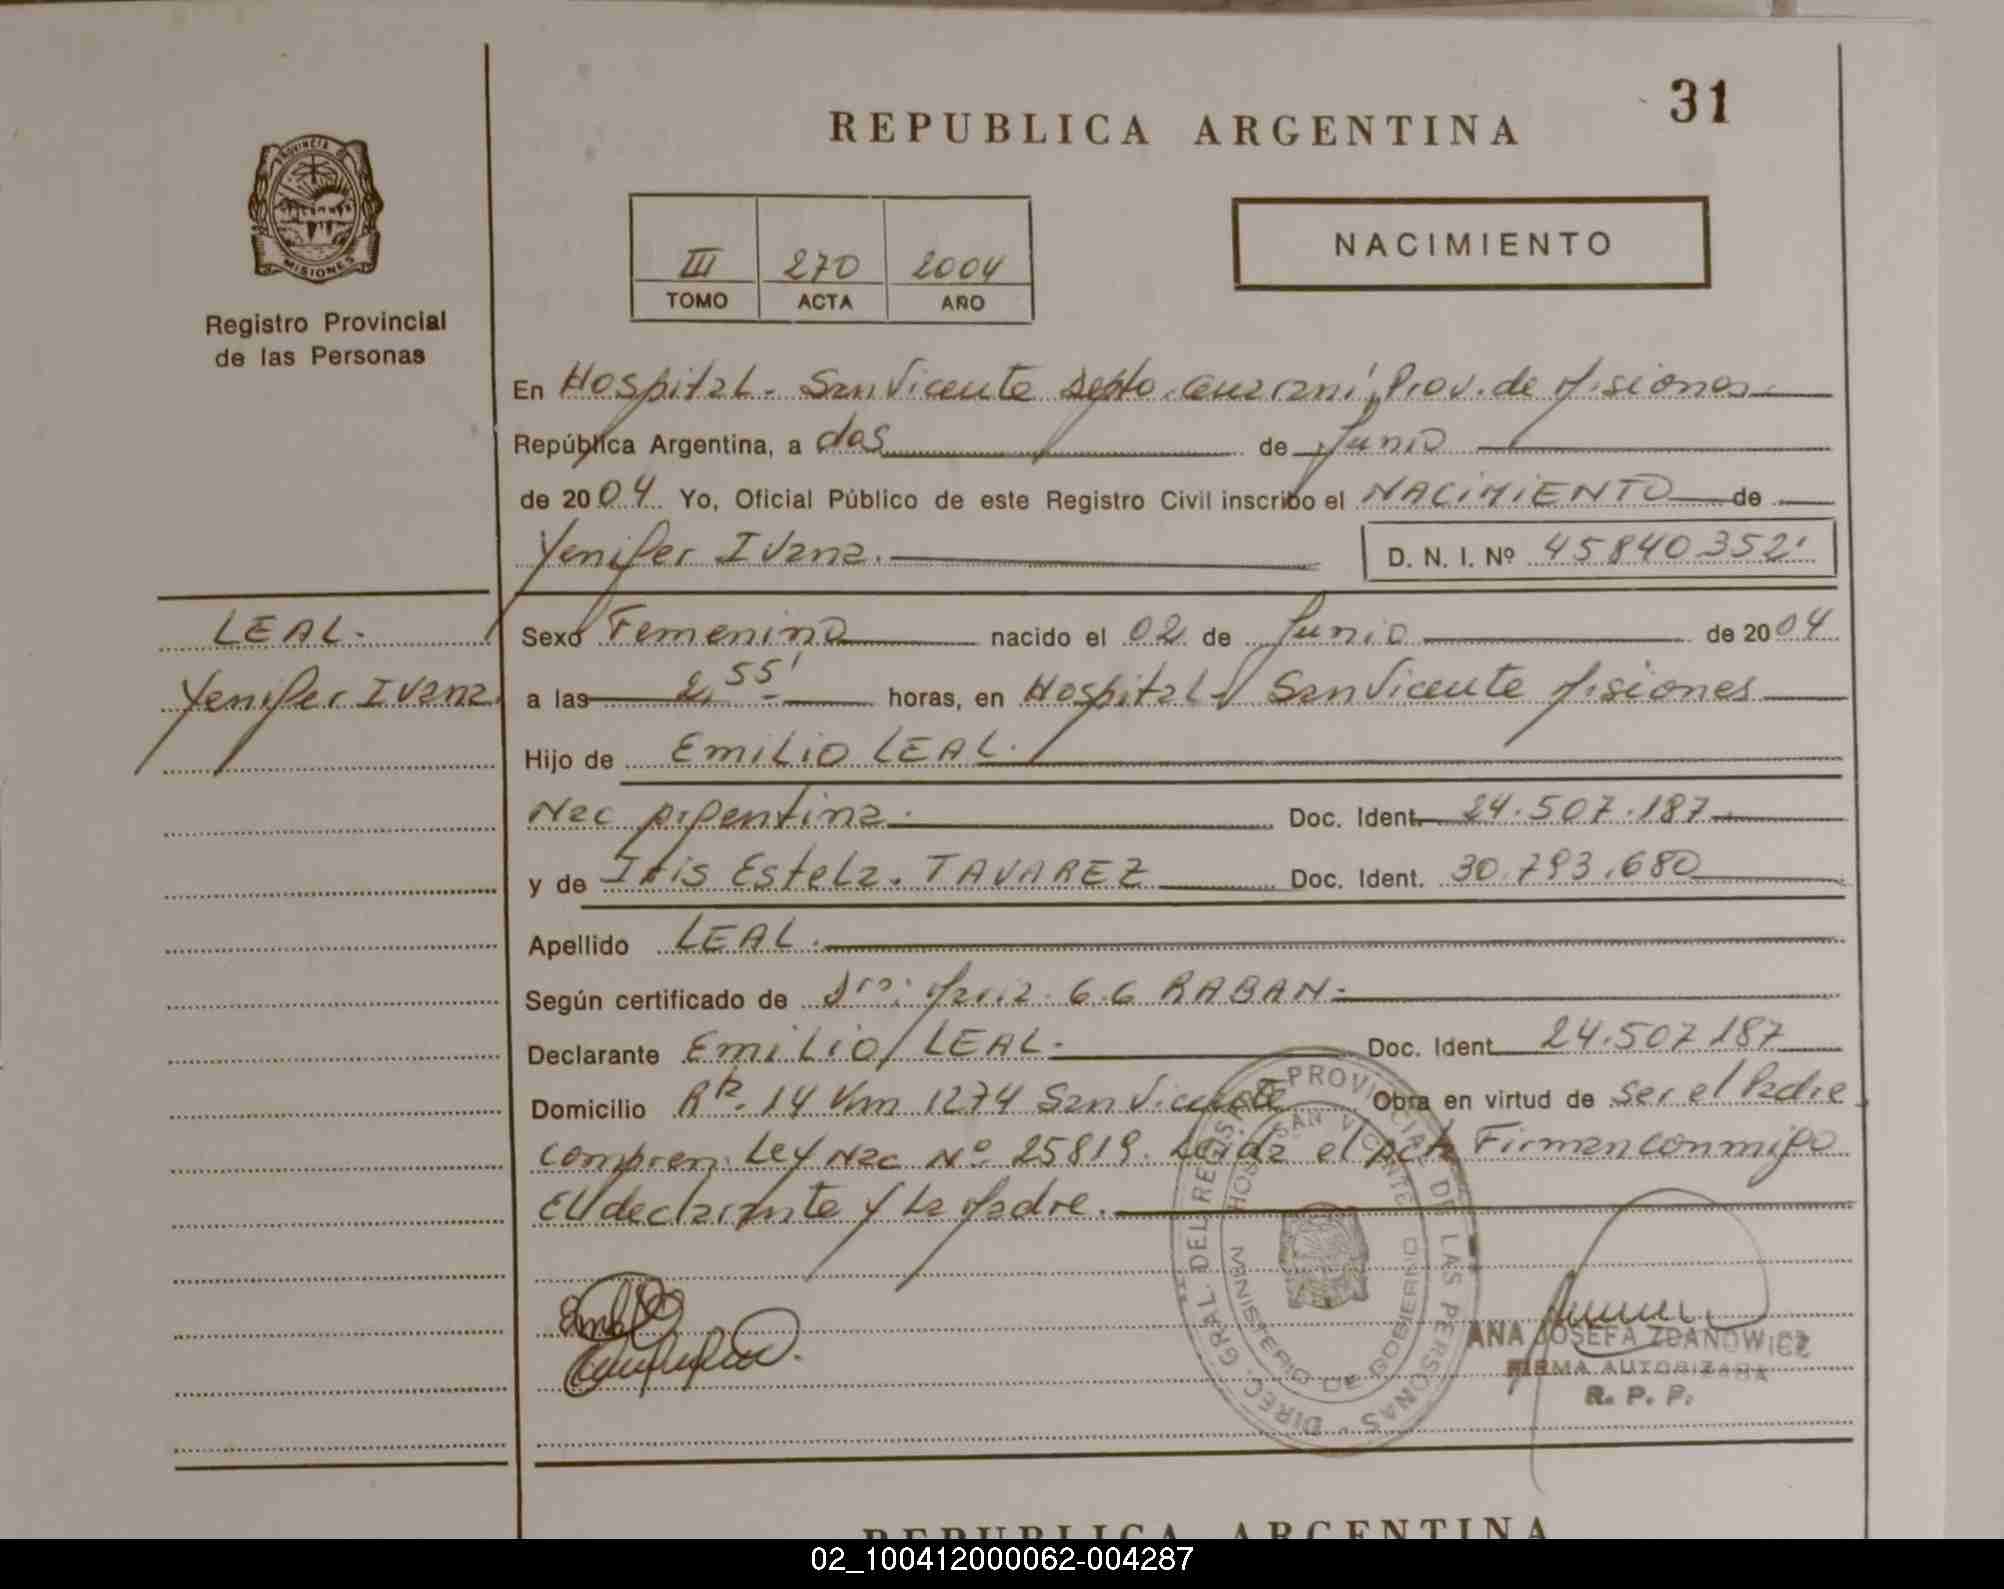 31
REPUBLICA ARGENTINA
PROVINCIA DE
MISIONES
Registro Provincial
de las Personas
III 270 2004
TOMO ACTA AÑO
NACIMIENTO
En Hospital - San Vicente Depto. Guaraní, Prov. de Misiones
República Argentina, a dos de Junio
de 2004 Yo, Oficial Público de este Registro Civil inscribo el NACIMIENTO de
Yenifer Ivana. D. N. I. Nº 45840352
LEAL.
Yenifer Ivana.
Sexo Femenino nacido el 02 de Junio de 2004
a las 2,55' horas, en Hospital - San Vicente Misiones
Hijo de Emilio LEAL.
Nac Argentina. Doc. Ident. 24.507.187
y de Iris Estela. TAVAREZ Doc. Ident. 30.793.680
Apellido LEAL.
Según certificado de Dra: María G.G RABAN.
Declarante Emilio LEAL. Doc. Ident. 24.507.187
Domicilio Rta. 14 Km 1274 San Vicente Obra en virtud de ser el Padre
compren. Ley Nac Nº 25819. Leida el acta Firman conmigo
El declarante y La Madre.
DIREC. GRAL. DEL REGISTRO PROVINCIAL DE LAS PERSONAS
HOSP. SAN VICENTE
MINISTERIO DE GOBIERNO
ANA JOSEFA ZDANOWICZ
FIRMA AUTORIZADA
R. P. P.
REPUBLICA ARGENTINA
02_100412000062-004287